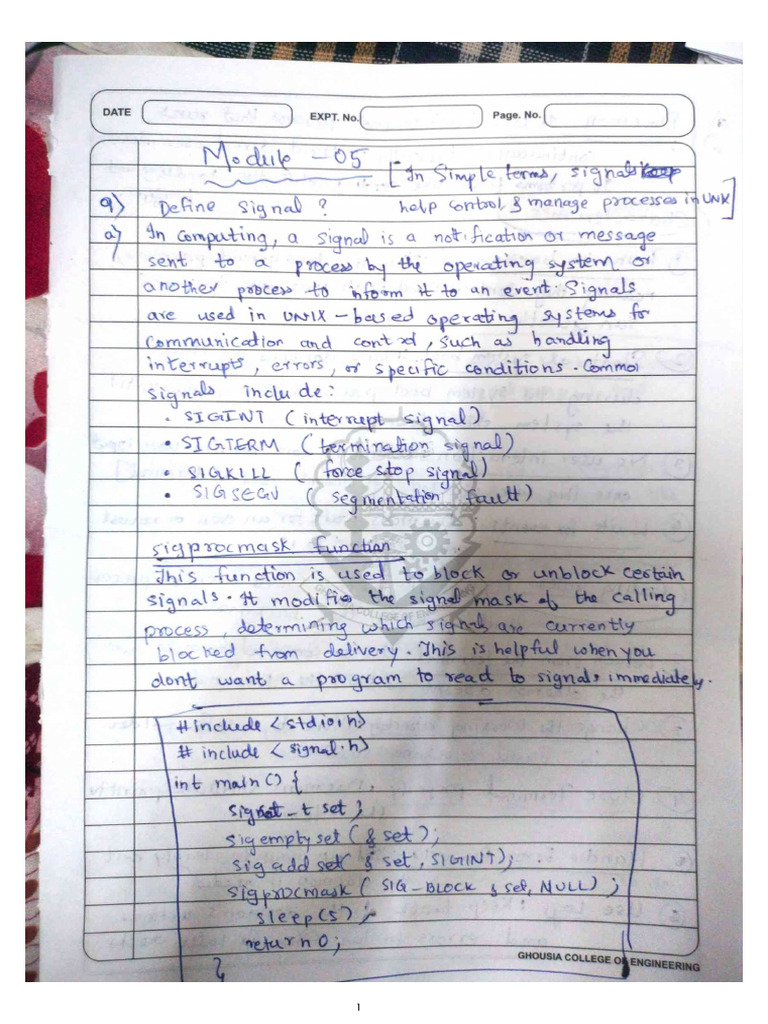 DATE
EXPT. No.
Page. No.
Module - 05
[In Simple terms, signals
q) Define Signal ? help control & manage processes in UNIX]
a) In computing, a signal is a notification or message
sent to a process by the operating system or
another process to inform it to an event. Signals
are used in UNIX-based operating systems for
communication and control, such as handling
interrupts, errors, or specific conditions. Common
signals include:
• SIGINT (interrupt signal)
• SIGTERM (termination signal)
• SIGKILL (force stop signal)
• SIGSEGV (segmentation fault)
sigprocmask function
This function is used to block or unblock certain
signals. It modifies the signal mask of the calling
process, determining which signals are currently
blocked from delivery. This is helpful when you
dont want a program to read to signals immediately.
#include <stdio.h>
# include <signal.h>
int main() {
sigset_t set;
sigemptyset (& set);
sigaddset( & set, SIGINT);
sigprocmask ( SIG-BLOCK & set, NULL) ;
sleep(5);
return 0;
}
COLLEGE OF
GHOUSIA COLLEGE OF ENGINEERING
1